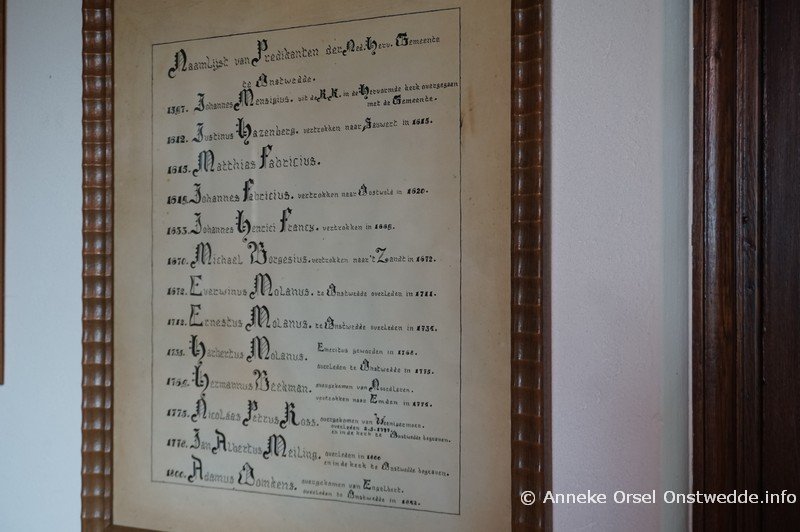 Naamlijst van Predikanten der Ned. Herv. Gemeente
te Onstwedde.
1597. Johannes Mensigius. uit de R.K. in de Hervormde kerk overgegaan
met de Gemeente.
1612. Justinus Hazenberg. vertrokken naar Sauwert in 1615.
1615. Matthias Fabricius.
1618. Johannes Fabricius. vertrokken naar Oostwold in 1620.
1633. Johannes Henrici Francy. vertrokken in
1670. Michael Borgesius. vertrokken naar 't Zandt in 1672.
1672. Everwinus Molanus. te Onstwedde overleden in 1711.
1712. Ernestus Molanus. te Onstwedde overleden in 1734.
1735. Harbertus Molanus. Emeritus geworden in
overleden te Onstwedde in 1775.
Hermannus Beekman. overgekomen van
vertrokken naar Emden in 1774.
1775. Nicolaas Petrus Ross. overgekomen van
overleden 2.5.1777
en in de kerk te Onstwedde begraven.
1778. Jan Albertus Meiling. overleden in 1800
en in de kerk te Onstwedde begraven.
1800. Adamus Domkens. overgekomen van Engelbert.
overleden te Onstwedde in
© Anneke Orsel Onstwedde.info